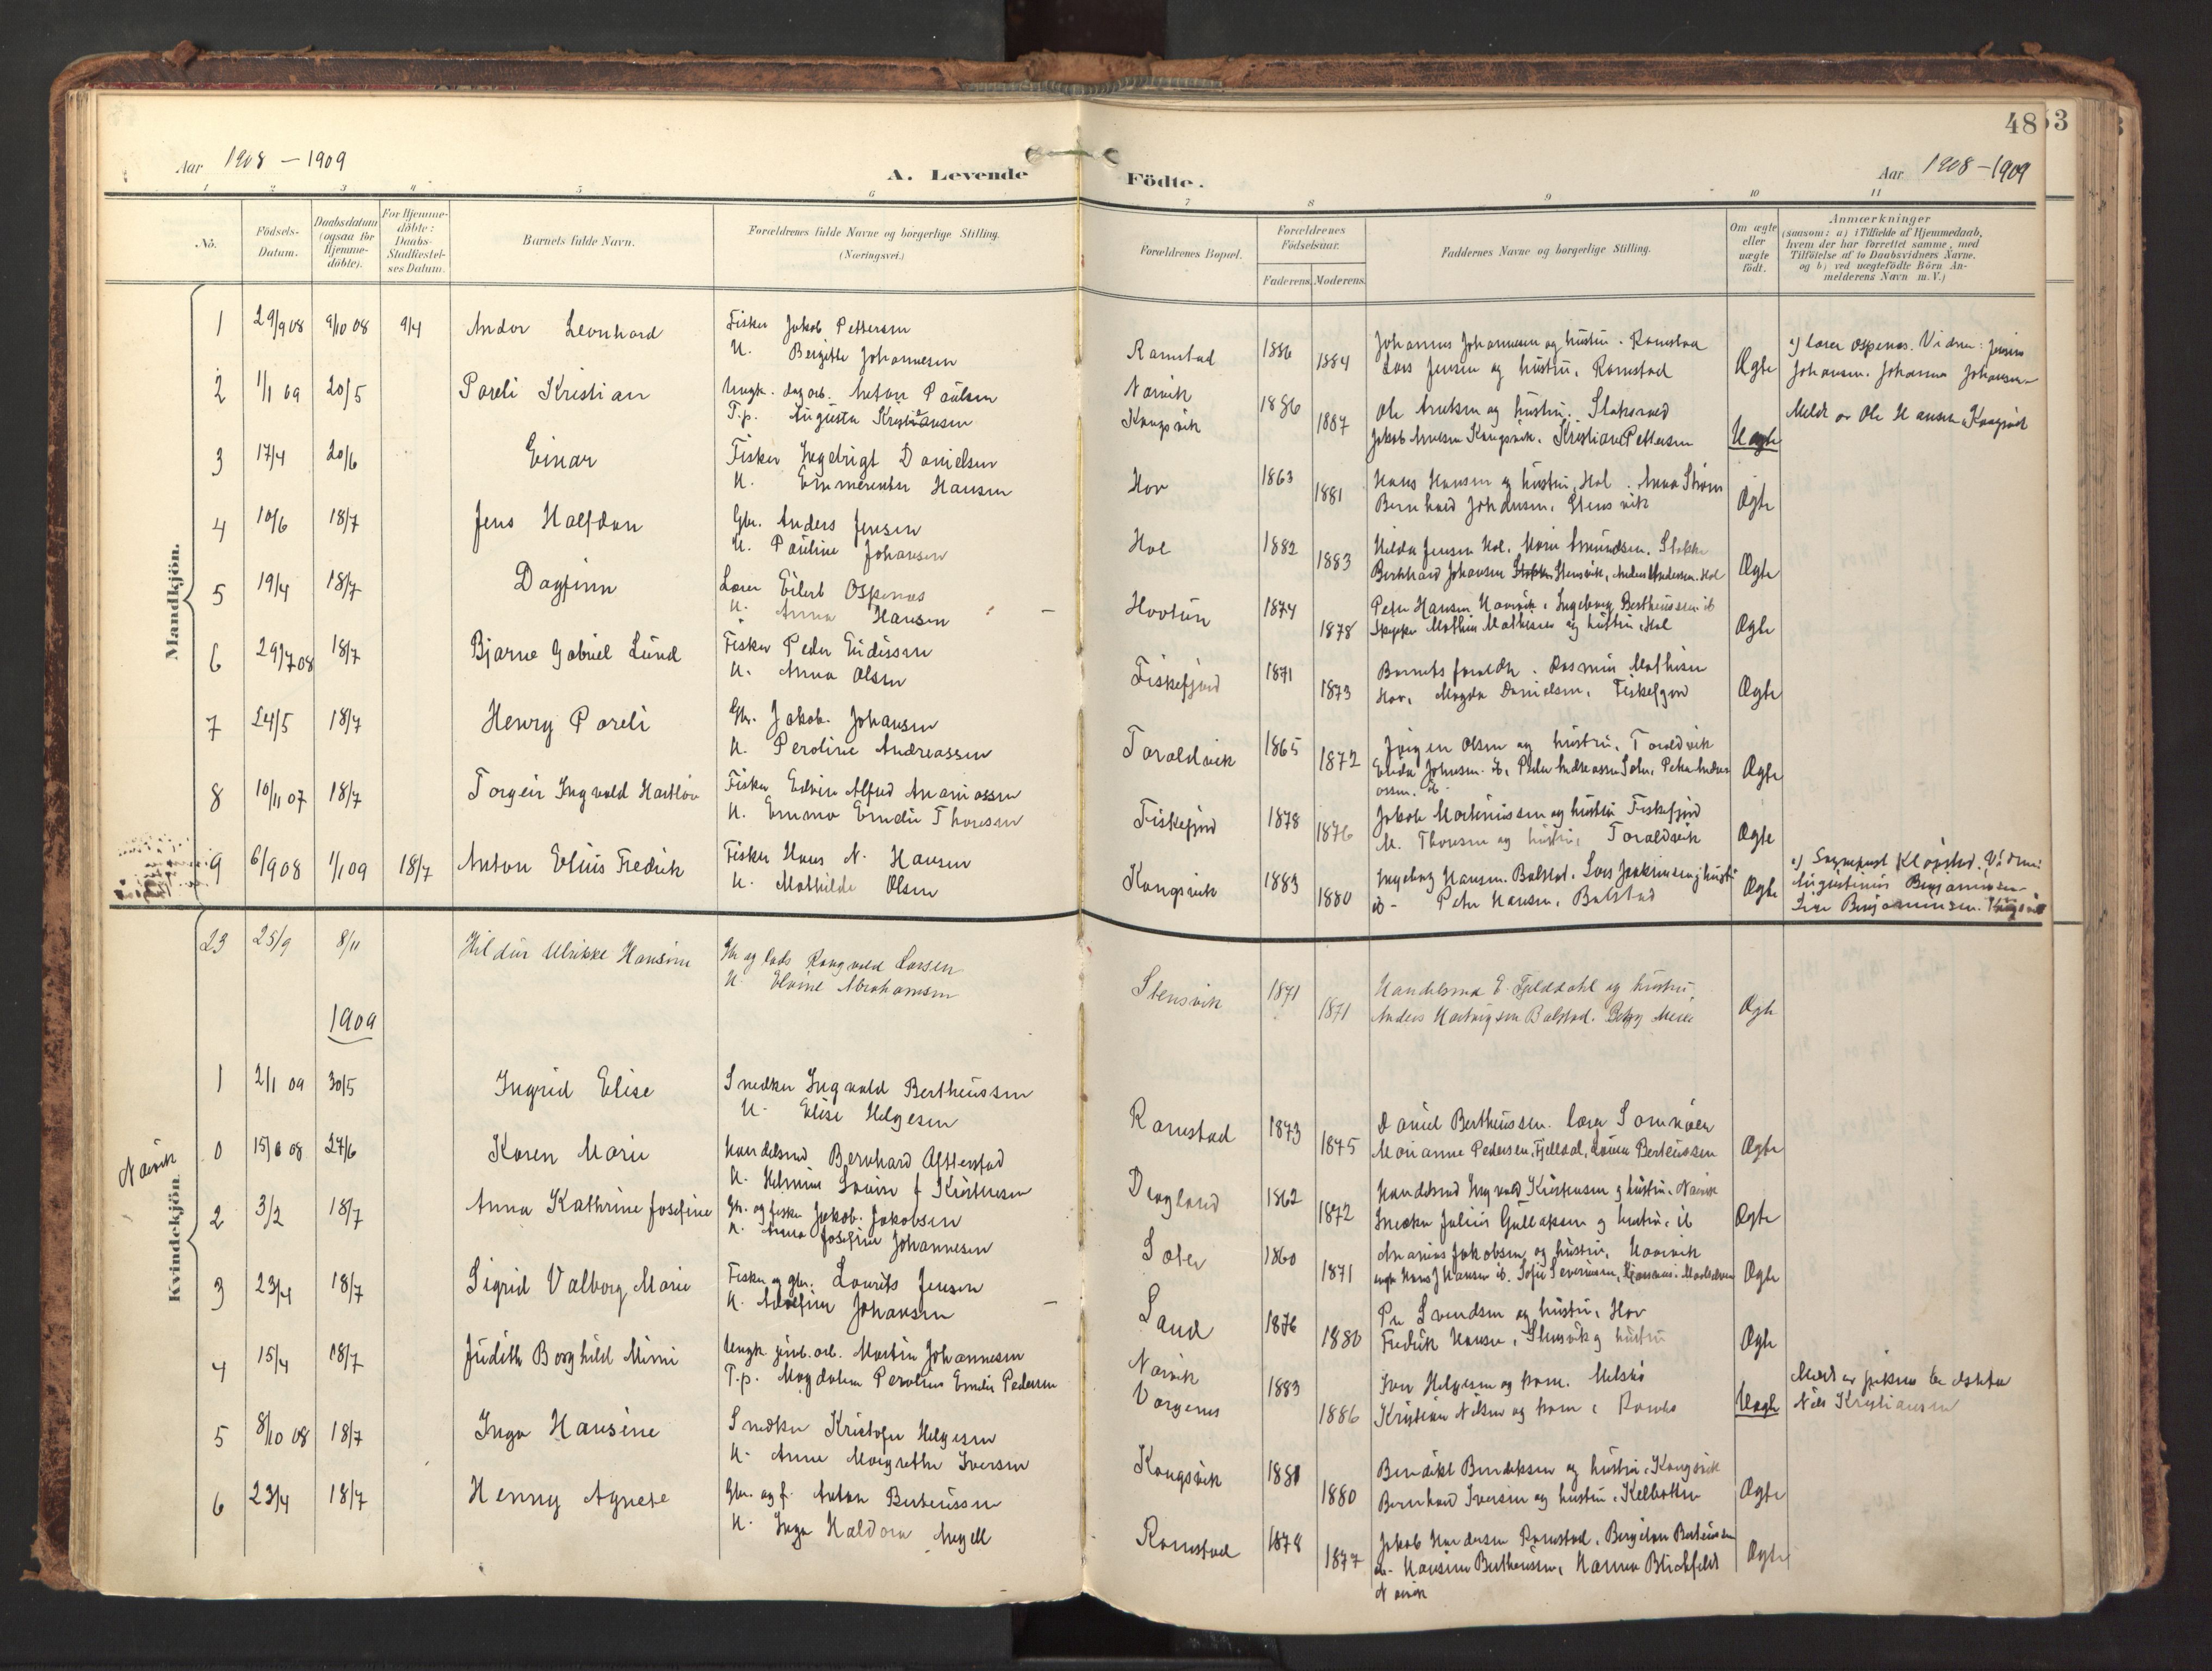 48
53
Aar 1908 – 1909
A. Levende
Födte.
Aar 1908 – 1909
1 2 3 4 5 6 7 8 9 10 11
No.
Födsels-Datum.
Daabsdatum (ogsaa for Hjemme-döbte).
For Hjemme-döbte: Daabs-Stadfæstel-ses Datum.
Barnets fulde Navn.
Forældrenes fulde Navne og borgerlige Stilling. (Næringsvei.)
Forældrenes Bopæl.
Forældrenes Födselsaar.
Faderens. Moderens.
Faddernes Navne og borgerlige Stilling.
Om ægte eller uægte födt.
Anmærkninger
(saasom: a) i Tilfælde af Hjemmedaab, hvem der har forrettet samme, med Tilföielse af to Daabsvidners Navne, og b) ved uægtefödte Börn An-melderens Navn m.V.)
Mandkjön.
1 29/9 08 9/10 08 9/4 Andor Leonhard Fisker Jakob Pettersen
H. Bergitte Johannesen
Ramstad 1886 1884 Johannes Johannesen og hustru. Ramstad
Lars Jensen og hustru, Ramstad
Ægte
a) Lærer Ospenes. Vidner: Jensine
Johansen. Johanna Johansen
2 1/1 09 20/5 Pareli Kristian Ungk. dagarb. Anton Paulsen
T.p. Augusta Kristiansen
Narvik
Kongsvik 1886 1887 Ole Andersen og hustru.
Jakob Arntsen Kongsvik. Kristian Pettersen
Uægte
Meldt av Ole Hansen, Kongsvik
3 17/4 20/6 Einar Fisker Ingebrigt Danielsen
H. Emmerentse Hansen
Hov 1863 1881 Hans Hansen og hustru, Hol. Anna Strøm
Bernhard Johansen, Stensvik
Ægte
4 10/6 18/7 Jens Halfdan Gbr. Anders Jensen
H. Pauline Johansen
Hol 1882 1883 Hilda Jensen Hol. Marie Amundsen. Stokke
Bernhard Johansen Stensvik, Anders Andersen. Hol
Ægte
5 19/4 18/7 Dagfinn Lærer Eilert Ospenes
H. Anna Hansen
Hovtun 1874 1878 Peter Hansen Narvik, Ingeborg Bertheussen ib
Skipper Mathias Mathisen og hustru, Hol
Ægte
6 29/7 08 18/7 Bjarne Gabriel Lund Fisker Peder Eidissen
H. Anna Olsen
Fiskefjord 1871 1873 Barnets foreldre. Rasmus Mathisen
Hov, Magda Danielsen, Fiskefjord
Ægte
7 24/5 18/7 Henry Pareli Gbr. Jakob Johansen
H. Peroline Andreassen
Toraldvik 1865 1872 Jørgen Olsen og hustru, Toraldvik
Johnsen. ib, Peder Andreassen Petra Andre
assen. ib
Ægte
8 10/11 07 18/7 Torgeir Ingvald Hartlov Fisker Edvin Alfred Ananiassen
H. Emma Emilie Thoresen
Fiskefjord 1878 1876 Jakob Martinussen og hustru Fiskefjord
M. Thoresen og hustru, Toraldvik
Ægte
9 6/9 08 1/1 09 18/7 Anton Elius Fredrik Fisker Hans N. Hansen
H. Mathilde Olsen
Kongsvik 1883 1880 Ingeborg Hansen. Balstad. Lars Joakimsen og hustru
ib – Peter Hansen, Balstad
Ægte
a) Sogneprest Kløvstad. Vidner:
Augustinus Benjaminsen
Benjaminsen.
23 25/9 8/11 Hildur Ulrikke Hansine Gbr og lods Rangvald Larsen
H. Elvine Abrahamsen
Stensvik 1871 1871 Handelsmd E. Fjelddahl og hustru,
Anders Hartvigsen Balstad. Betzy Meier
Ægte
1909
Kvindekjön.
1 2/1 09 30/5 Ingrid Elise Snedker Ingvald Bertheussen
H. Elise Helgesen
Ramstad 1873 1875 Daniel Bertheussen. Lærer
Marianne Pedersen, Fjelldal, Lovise Berteussen
Ægte
Narvik
0 15/6 08 27/6 Karen Marie Handelsmd Bernhard Østterstad
H. Helmine Lovise f Kristensen
Dragland 1862 1872 Handelsmd Ingvald Kristensen og hustru. Narvik
Snedker Julius Gullaksen og hustru, ib
Ægte
2 3/2 18/7 Anna Kathrine Josefine Gbr. og fisker Jakob Jakobsen
H. Anna Josefine Johannesen
1860 1871 Ananias Jakobsen og hustru,
ungk Hans J Hansen ib. Sofie Severinsen,
Ægte
3 23/4 18/7 Sigrid Valborg Marie Fisker og gbr. Laurits Jensen
H. Adolfine Johansen
Sand 1876 1880 Per Svendsen og hustru, Hov
Fredrik Hansen, Stensvik og hustru
Ægte
4 15/4 18/7 Judith Borghild Mimi Ungk jernb.arb. Martin Johannesen
T.p. Magdalena Peroline Emelie Pedersen
Narvik
Vargenes 1883 1886 Iver Helgesen og kone.
Kristian Nilsen og kone,
Uægte
Meldt av
Nils Kristiansen
5 8/10 08 18/7 Inga Hansine Snedker Kristofer Helgesen
H. Anne Margrethe Iversen
Kongsvik 1881 1880 Benedikt Bendiksen og hustru, Kongsvik
Bernhard Iversen og hustru,
Ægte
6 23/4 18/7 Henny Agnete Gbr. og f. Anton Berteussen
H. Inga Haldora Angell
Ramstad 1878 1877 Jakob Andersen Ramstad, Bergitha Berteussen
ib – Hansine Bertheussen, Hanna Blickfeldt
Narvik
Ægte